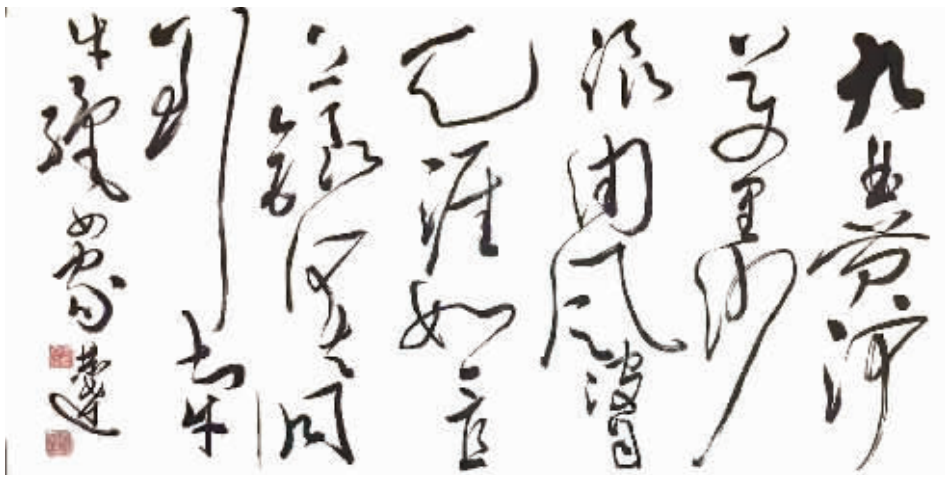 九曲黄河
万里沙
浪淘风波自
天涯如今
直上银河去同
到牵
牛织女家